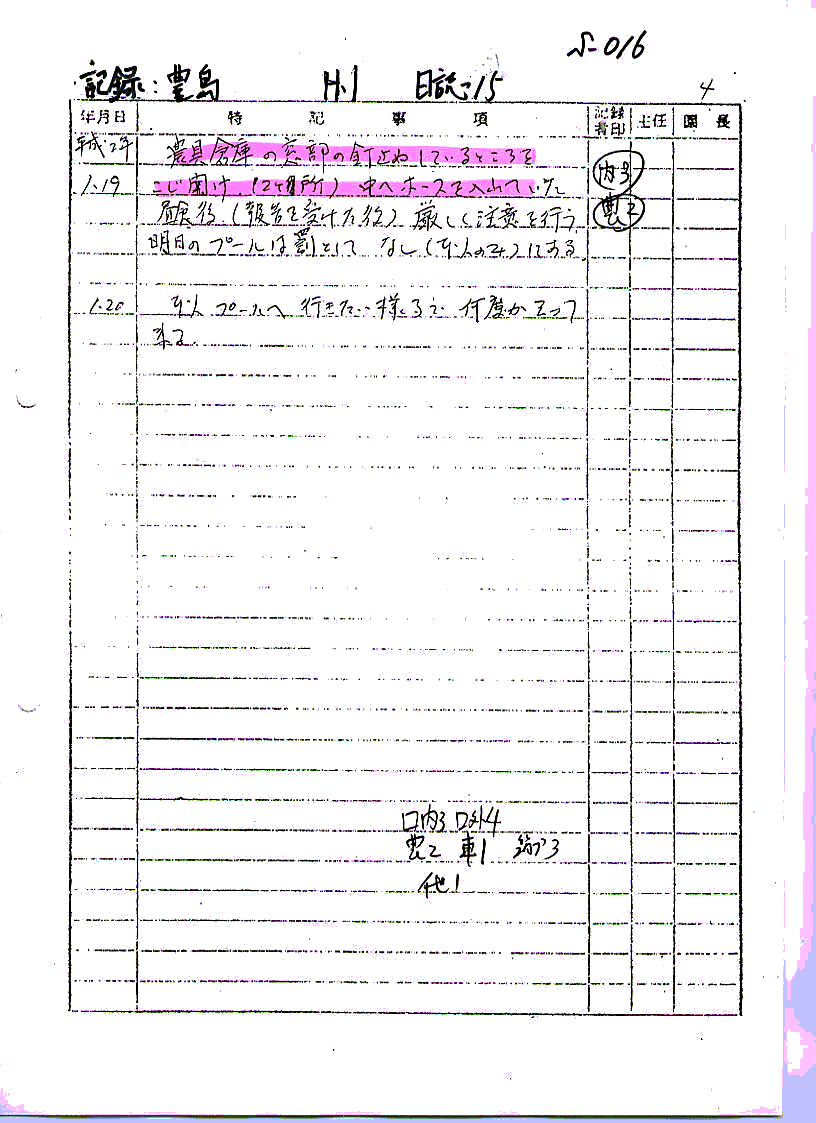 S-016
記録：豊島 H.1 日誌：15
4
年月日 特記事項 記録者印 主任 園長
平成2年 農具倉庫の窓部の釘止めしているところを
1.19 こじ開け（2ヶ所）中へホースを入れていた
内3
昼食後（報告を受けた後）厳しく注意を行う
農2
明日のプールは罰として なし（本人のみ）にする
1.20 本人 プールへ 行きたい様子で 何度か 言って
来る
口内3 口外4
農2 車1
他1